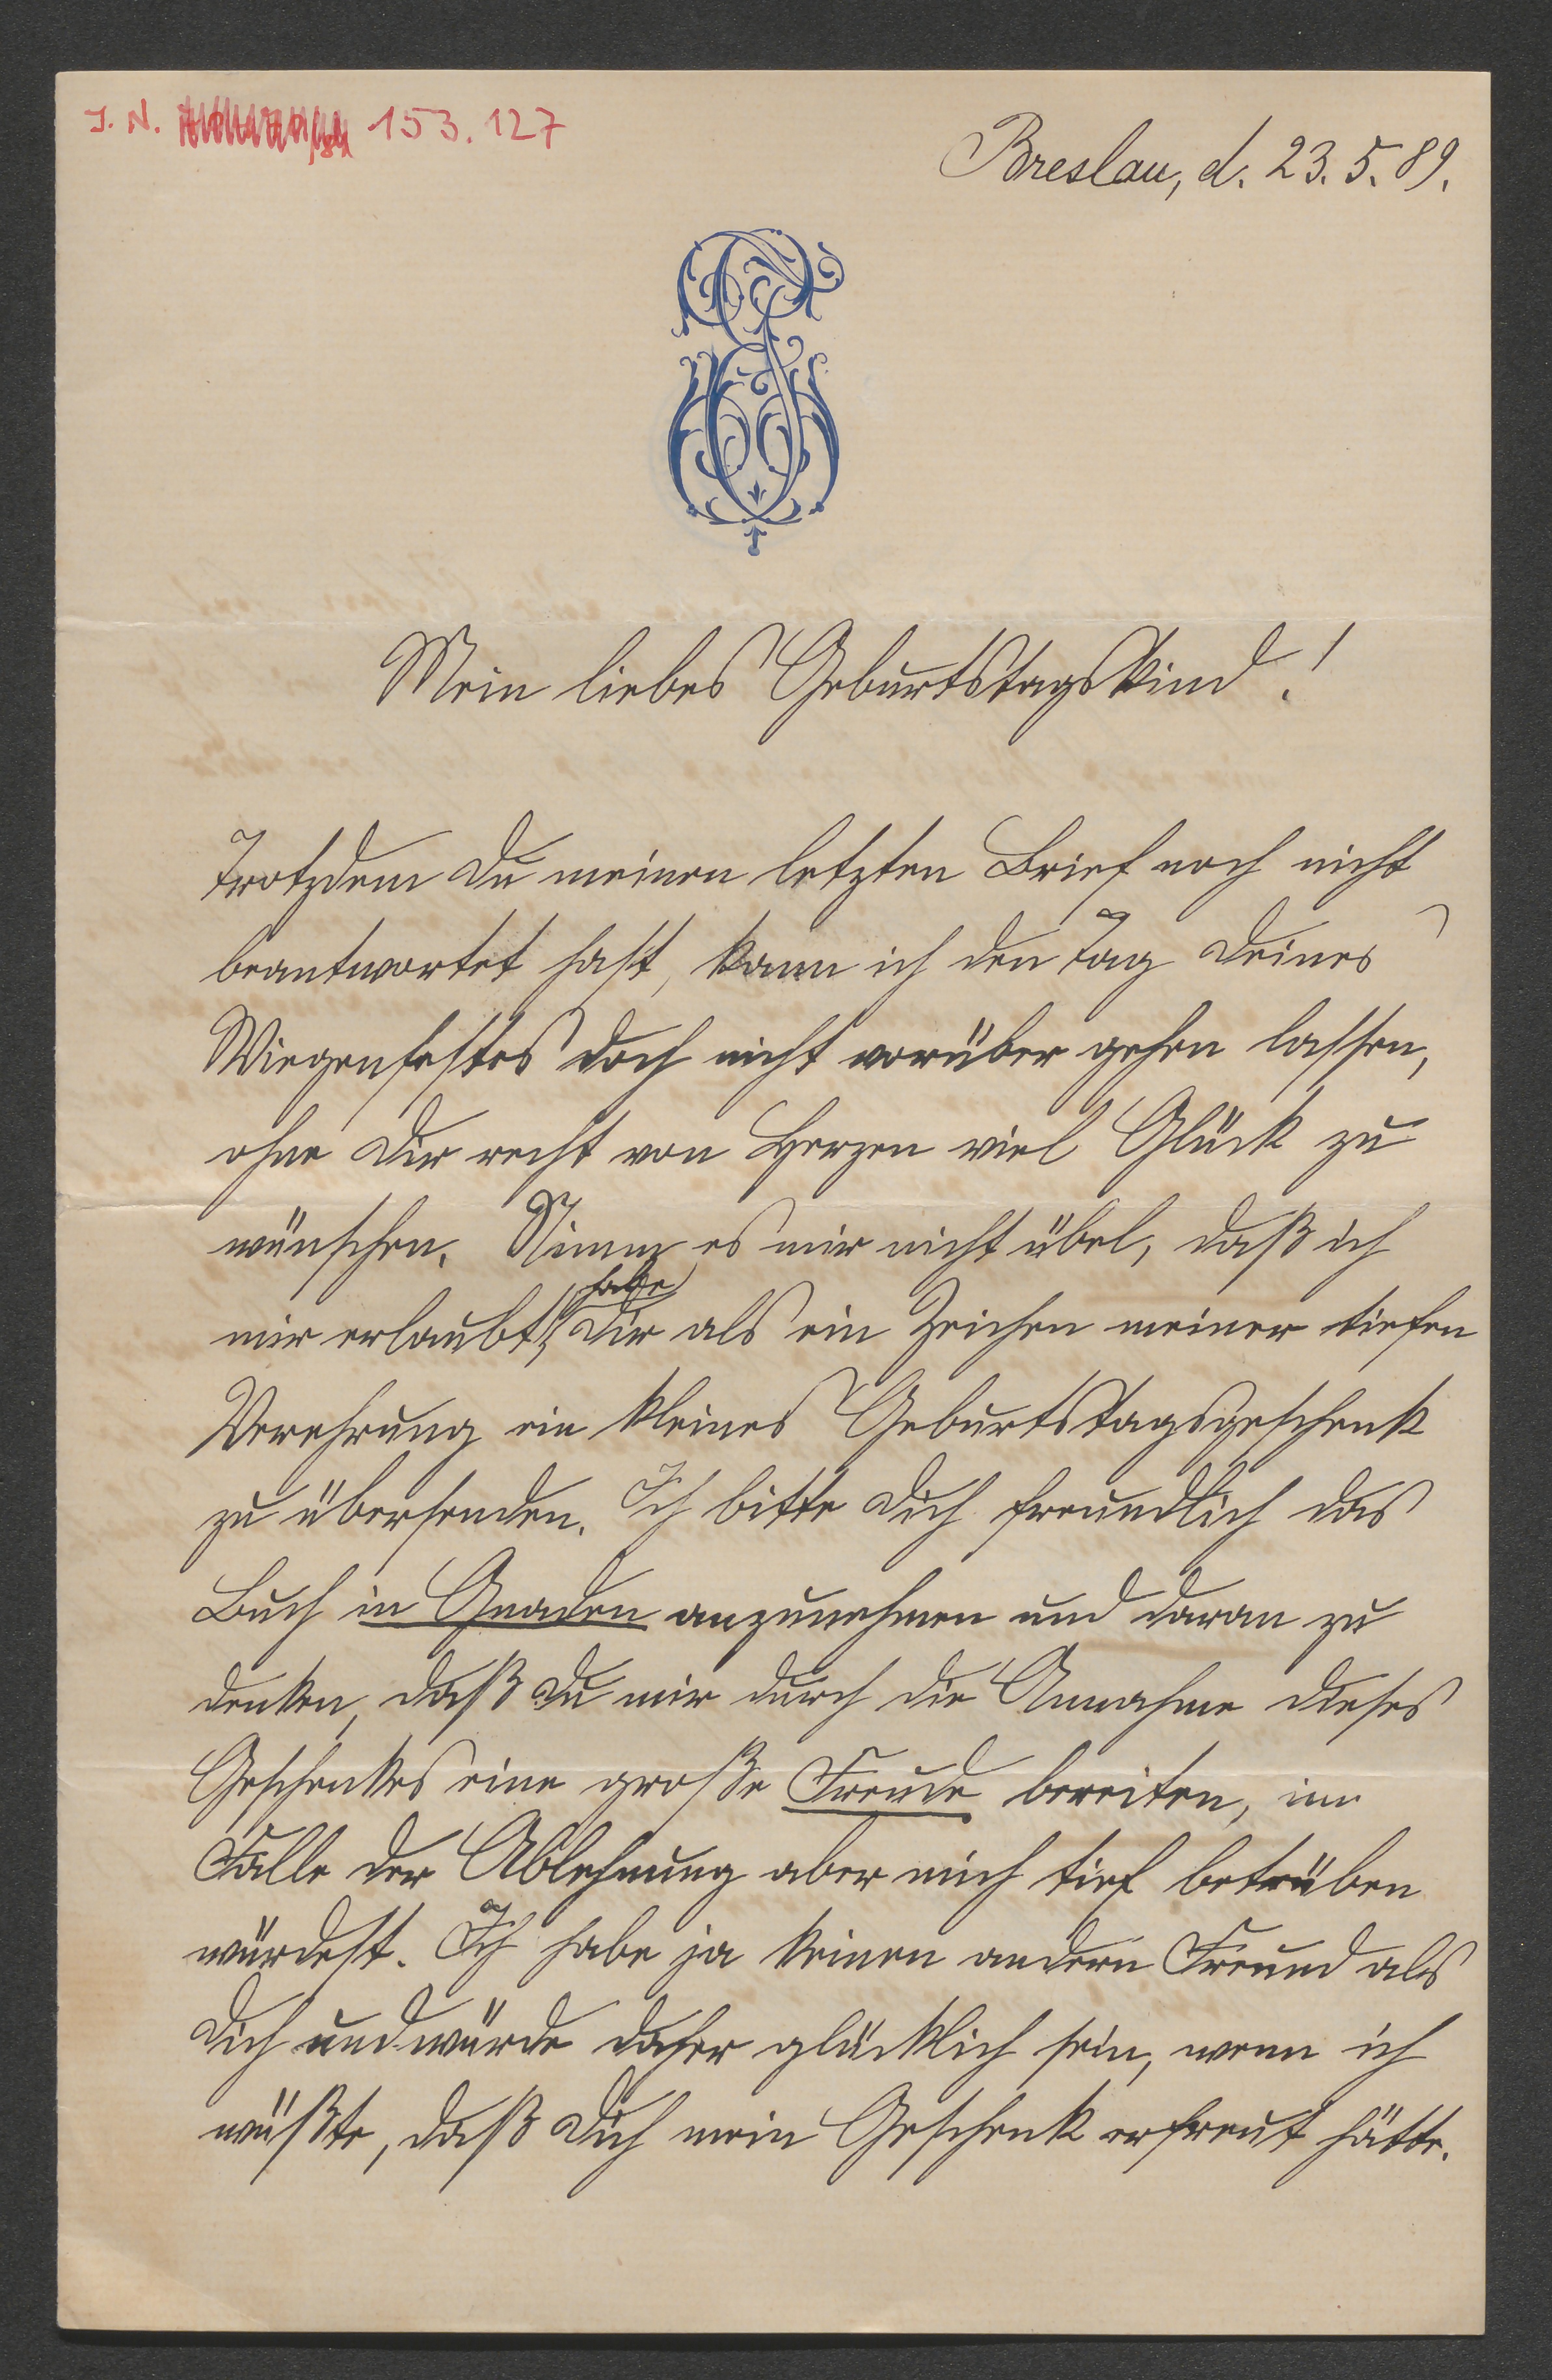 J. N. 153.127
Breslau, d. 23. 5. 89.
Mein liebes Geburtstagskind!
Trotzdem Du meinen letzten Brief noch nicht
beantwortet hast, kann ich den Tag Deines
Wiegenfestes doch nicht vorüber gehen lassen,
ohne Dir recht von Herzen viel Glück zu
wünschen. Nimm es mir nicht übel, daß ich
habe
mir erlaubt, Dir als ein Zeichen meiner tiefen
Verehrung ein kleines Geburtstagsgeschenk
zu übersenden. Ich bitte Dich freundlich das
Buch in Gnaden anzunehmen und daran zu
denken, daß Du mir durch die Annahme dieses
Geschenkes eine große Freude bereiten, im
Falle der Ablehnung aber mich tief betrüben
würdest. Ich habe ja keinen andern Freund als
Dich und würde daher glücklich sein, wenn ich
wüßte, daß Dich mein Geschenk erfreut hätte.